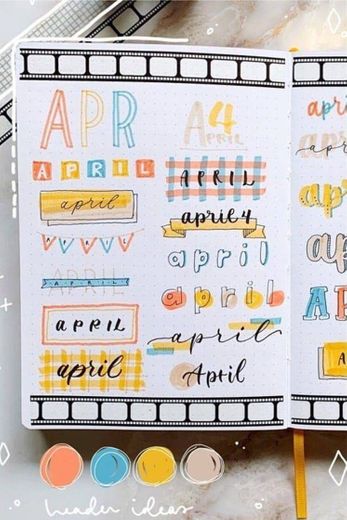 APR
APRIL
april
APRIL
APRIL
APRIL
april
A4
APRIL
APRIL
april 4
april
april
april
April
apr
apri
ap
ap
AP
A
header ideas